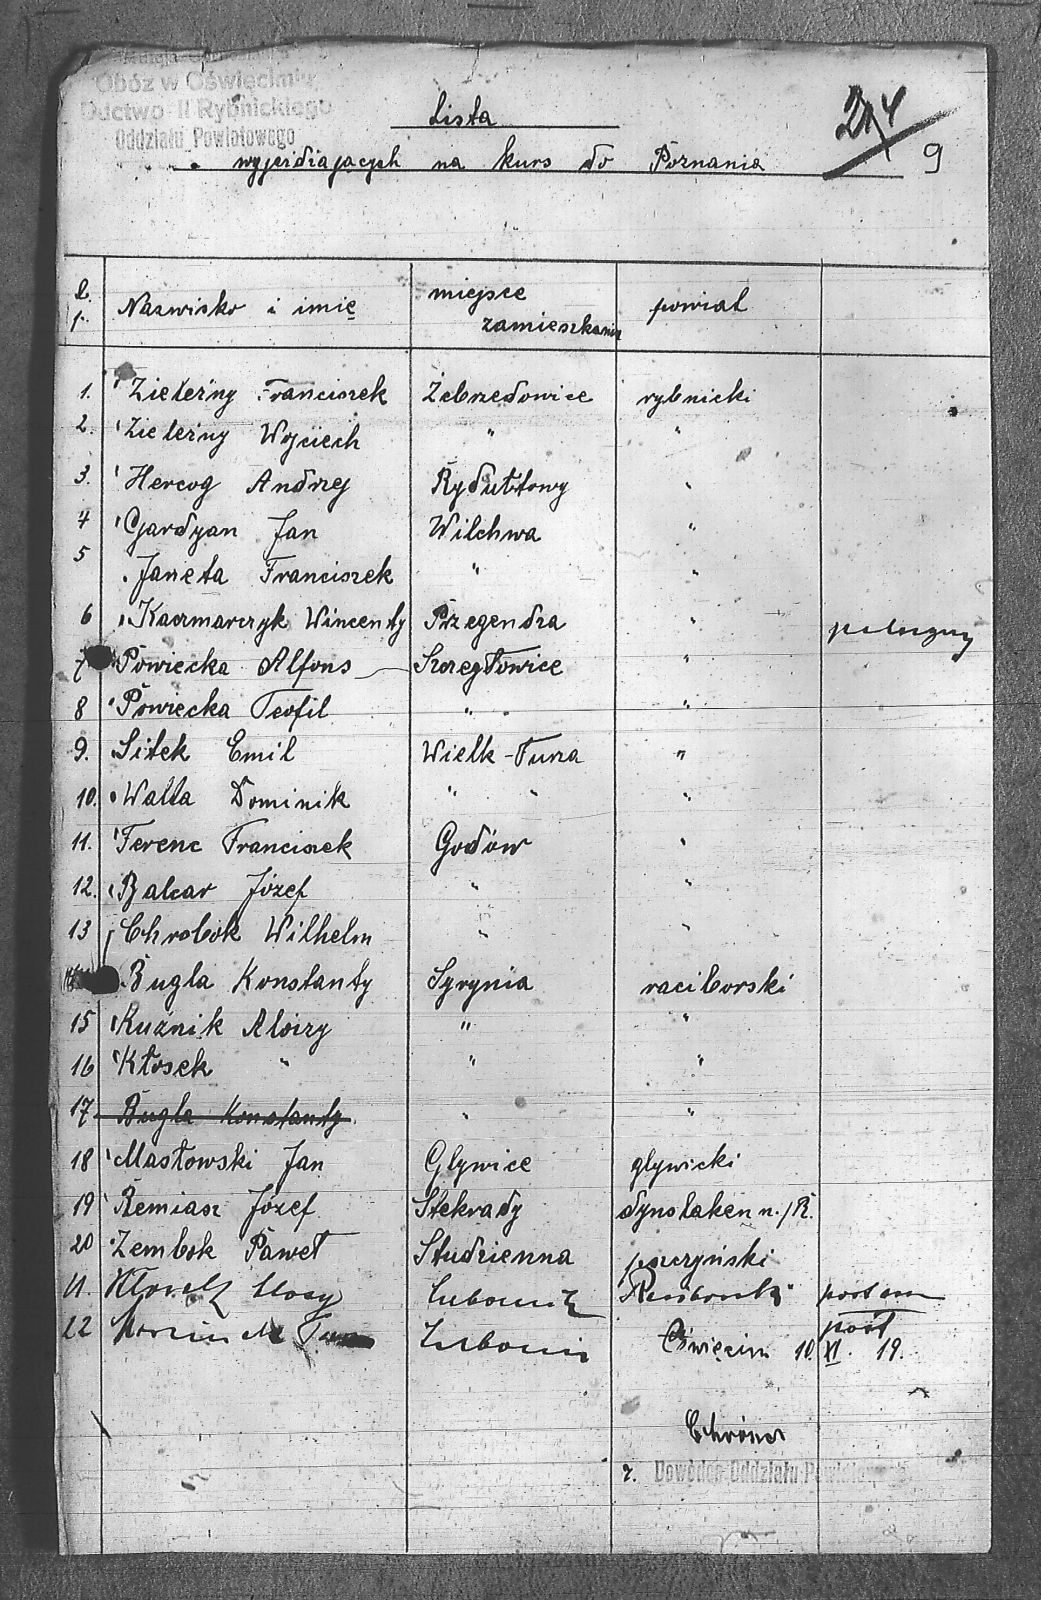 Obóz w Oświęcimiu
Ductwo II Rybnickiego
Oddziału Powiatowego
Lista
wyjeżdżających na kurs do Poznania
9
L. p. Nazwisko i imię miejsce zamieszkania powiat
1. Zieleźny Franciszek Zebrzedowice rybnicki
2. Zieleźny Wojciech " "
3. Hercog Andrzej Rydułtowy "
4 Gardyan Jan Wilchwa "
5 Janeta Franciszek " "
6 Kaczmarczyk Wincenty Przegendza "
7 Powiecka Alfons Szczegłowice "
8 Powiecka Teofil " "
9. Sitek Emil Wielk-Turza "
10. Walla Dominik " " "
11. Ferenc Franciszek Godów "
12. Balcar Józef " "
13 Chrobok Wilhelm " "
Bugla Konstanty Syrynia raciborski
15 Kuźnik Alojzy " "
16 Kłosek " " "
17 Bugla Konstanty " "
18 Masłowski Jan Glywice glywicki
19 Remiasz Józef Stekrady dynslaken n./R.
20 Zembok Paweł Studzienna pszczyński
21.
22 Oświęcim 10. XI. 19.
Dowódca Oddziału